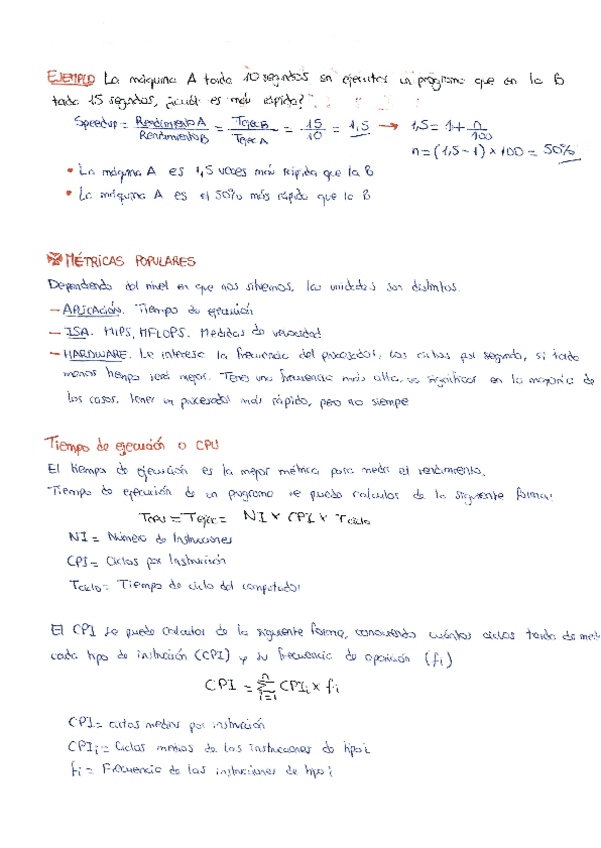 EJEMPLO La máquina A tarda 10 segundos en ejecutar un programa que en la B
tarda 15 segundos, ¿cuál es más rápida?
Speedup = Rendimiento A / Rendimiento B = Tejec B / Tejec A = 15 / 10 = 1,5 → 1,5 = 1 + n / 100
n = (1,5 - 1) × 100 = 50%
• La máquina A es 1,5 veces más rápida que la B
• La máquina A es el 50% más rápida que la B
MÉTRICAS POPULARES
Dependiendo del nivel en que nos situemos, las unidades son distintas.
- APLICACIÓN. Tiempo de ejecución
- ISA. MIPS, MFLOPS. Medidas de velocidad
- HARDWARE. Le interesa la frecuencia del procesador, los ciclos por segundo, si tarda
menos tiempo será mejor. Tener una frecuencia más alta, va significar en la mayoría de
los casos, tener un procesador más rápido, pero no siempre
Tiempo de ejecución o CPU
El tiempo de ejecución es la mejor métrica para medir el rendimiento.
Tiempo de ejecución de un programa se puede calcular de la siguiente forma:
Tcpu = Tejec = NI × CPI × Tciclo
NI = Número de Instrucciones
CPI = Ciclos por Instrucción
Tciclo = Tiempo de ciclo del computador
El CPI se puede calcular de la siguiente forma, conociendo cuántos ciclos tarda de
cada tipo de instrucción (CPI) y su frecuencia de aparición (fi)
CPI = Σ n i=1 CPIi × fi
CPI = ciclos medios por instrucción
CPIi = Ciclos medios de las instrucciones de tipo i
fi = Frecuencia de las instrucciones de tipo i